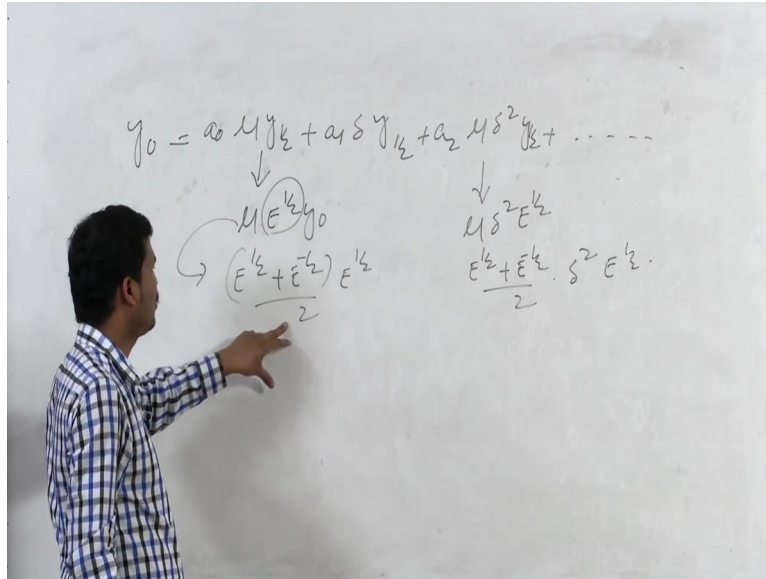 y₀ = a₀ μy½ + a₁ δ y½ + a₂ μδ²y½ + ......
↓ ↓
μ E^½ y₀ μδ²E^½
(E^½ + E^-½)/2 E^½ (E^½ + E^-½)/2 . δ² E^½ .